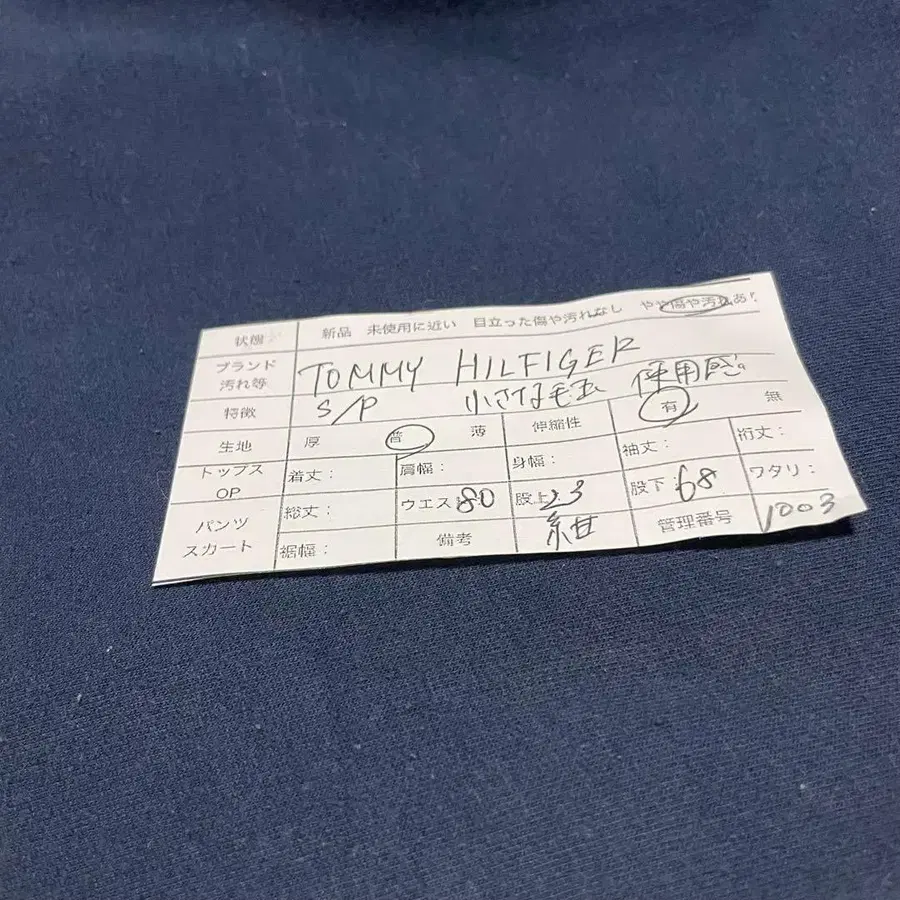 状態 新品 未使用に近い 目立った傷や汚れなし やや傷や汚れあり
ブランド TOMMY HILFIGER
汚れ等 小さな毛玉 使用感。
特徴 S/P
生地 厚 普 薄 伸縮性 有 無
トップス 着丈： 肩幅： 身幅： 袖丈： 裄丈：
OP 総丈： ウエスト 80 股上 23 股下 68 ワタリ：
パンツ
スカート 裾幅： 備考 紺 管理番号 1003